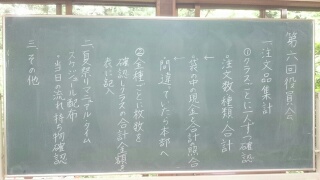 第六回役員会
一、注文品集計
①クラスごとに一人ずつ確認
・注文数、種類、合計
↓
袋の中の現金と合計の照合
↓
間違っていたら本部へ
②全種ごとに枚数を
確認しクラスの合計金額を
表に記入
二、夏祭りマニュアル・タイム
スケジュール配布
・当日の流れ、持ち物確認
三、その他